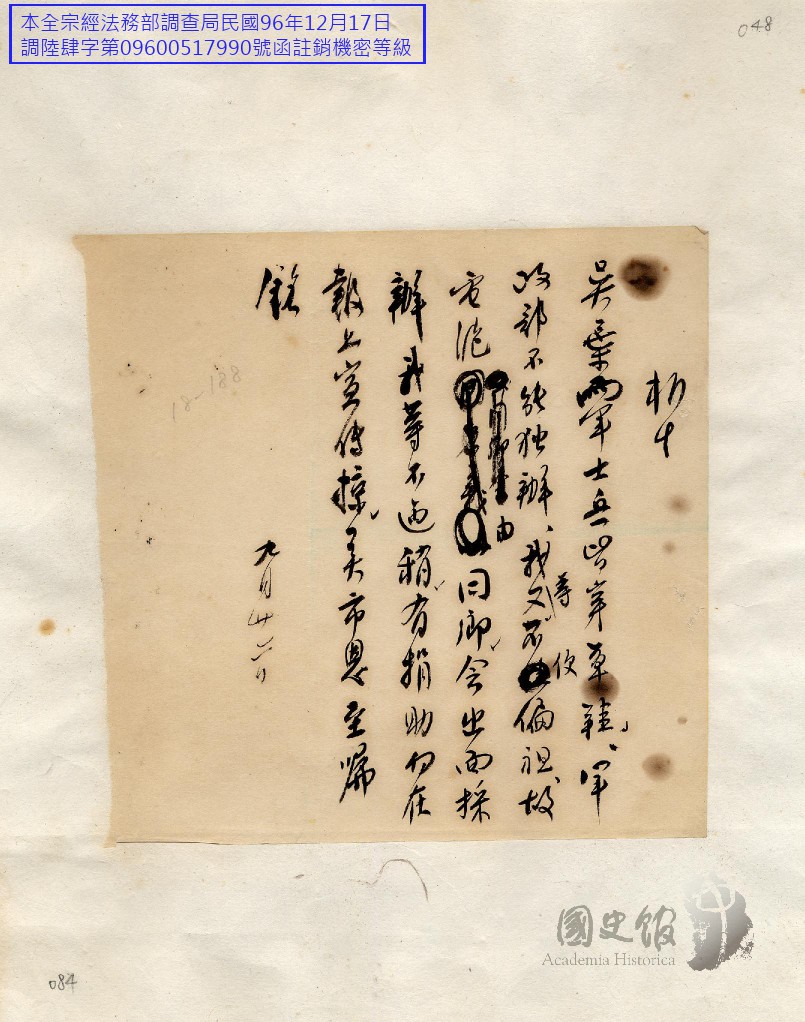 本全宗經法務部調查局民國96年12月17日
調陸肆字第09600517990號函註銷機密等級
048
吳葉兩軍士兵皆草鞋、軍
政部不能独辦、我等又不便偏袒、故
電滬由同鄉会出面採
辦我等不過稍有捐助勿在
報上宣傳掠美市恩至嘱
銘
九月廿六日
18-188
國史館
Academia Historica
084